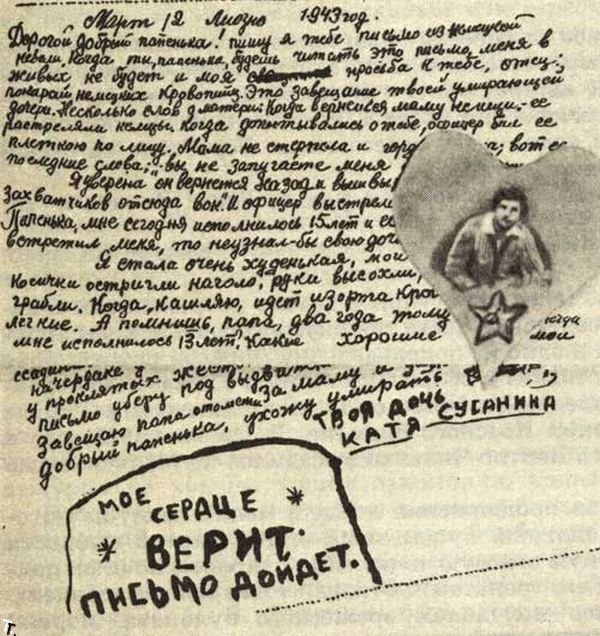 Март, 12, Лиозно 1943 год.
Дорогой добрый папенька! Пишу я тебе письмо из немецкой
неволи. Когда ты, папенька, будешь читать это письмо, меня в
живых не будет и моя просьба к тебе, отец:
покарай немецких кровопийц. Это завещание твоей умирающей
дочери. Несколько слов о матери: Когда вернешся маму не ищи, – ее
растреляли немцы. Когда допытывались о тебе, офицер бил ее
плеткою по лицу. Мама не стерпела и вот ее
последние слова: „вы не запугаете меня
Я уверена он вернется назад и
захватчиков отсюда вон. И офицер выстрел
Папенька, мне сегодня исполнилось 15 лет и
встретил меня, то неузнал-бы свою доч
Я стала очень худенькая, мои
косички остригли наголо, руки высохли,
грабли. Когда кашляю, идет изо рта кро
легкие. А помнишь, папа, два года тому
мне исполнилось 13 лет. Какие хорошие мои
на чердаке у
у проклятых
письмо уберу под
Завещаю папа отомсти за маму и
добрый папенька, ухожу умирать
ТВОЯ ДОЧЬ
КАТЯ СУСАНИНА
МОЕ
СЕРДЦЕ
ВЕРИТ.
ПИСЬМО ДОЙДЕТ.